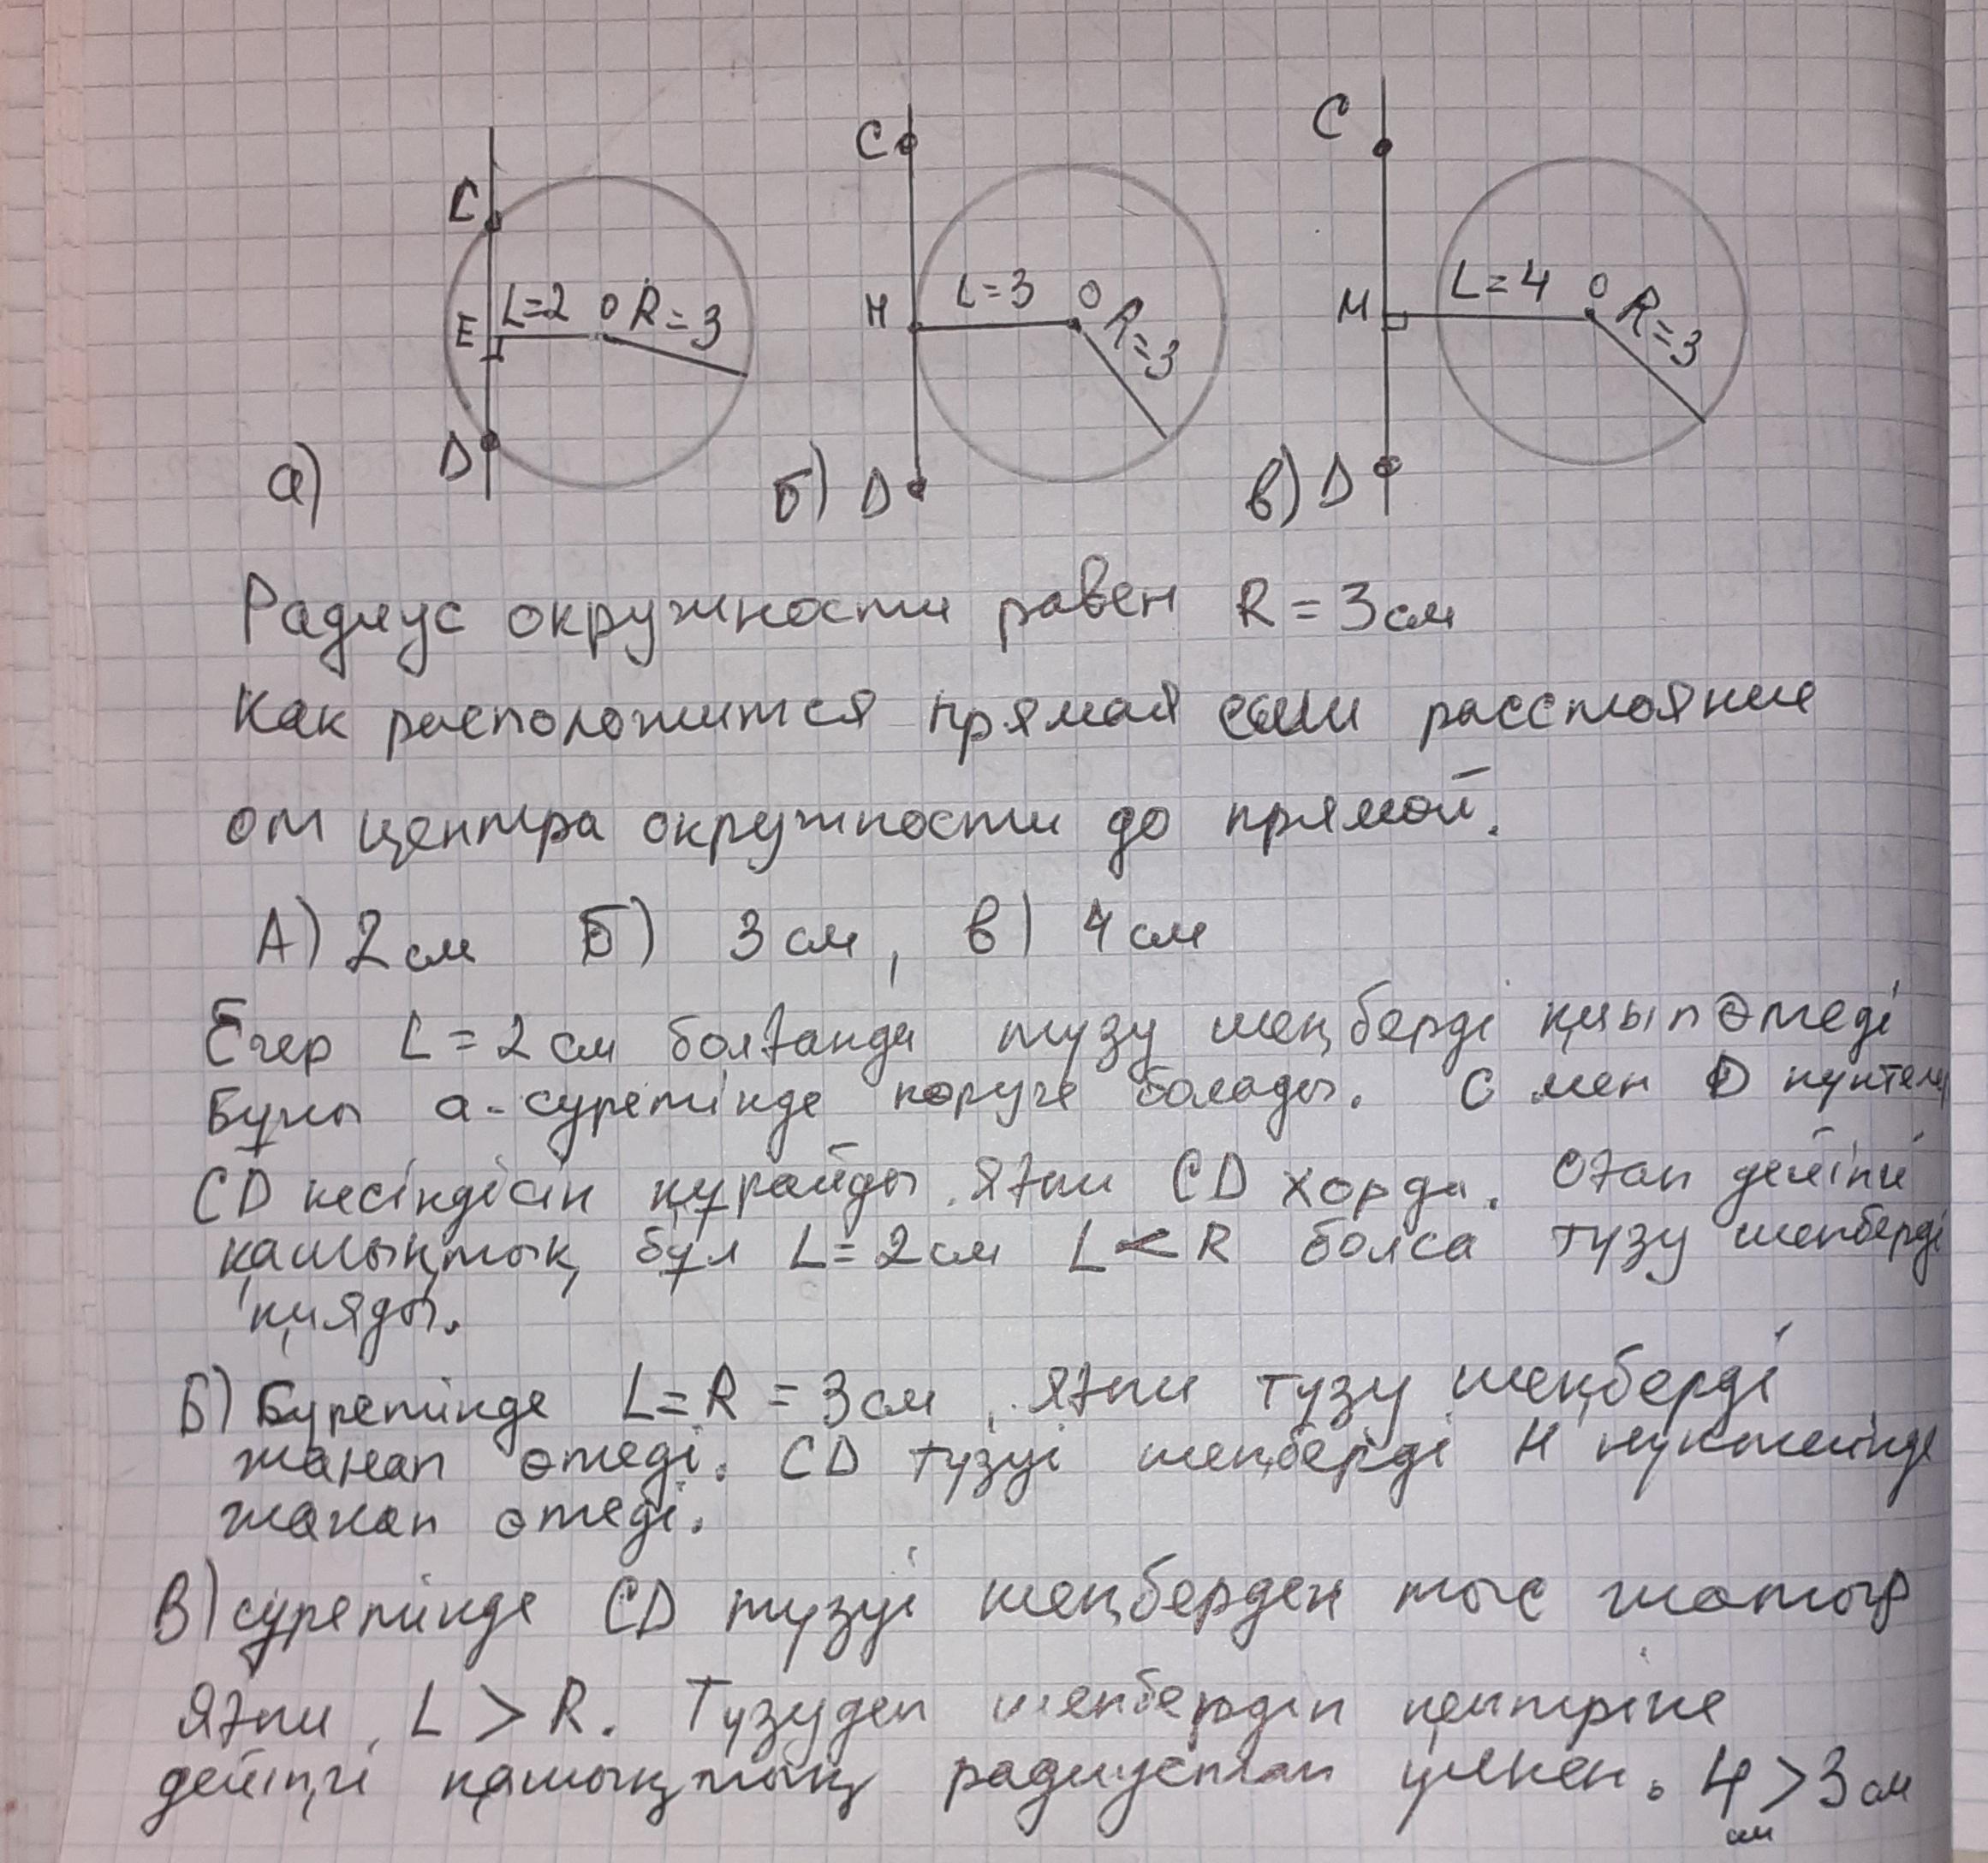 C
E L=2 O R=3
D
а)
C
H L=3 O R=3
б) D
C
M L=4 O R=3
в) D
Радиус окружности равен R = 3 см
Как расположится прямая если расстояние
от центра окружности до прямой.
А) 2 см Б) 3 см, в) 4 см
Егер L = 2 см болғанда түзу шеңберді қиып өтеді
Бұны а-суретінде көруге болады. C мен D нүктелер
CD кесіндісін құрайды. Яғни CD хорда. Оған дейінгі
қашықтық бұл L = 2 см L < R болса түзу шеңберді
қияды.
Б) Суретінде L = R = 3 см, яғни түзу шеңберді
жанап өтеді. CD түзуі шеңберді H нүктесінде
жанап өтеді.
В) суретінде CD түзуі шеңберден тыс жатыр
Яғни, L > R. Түзуден шеңбердің центріне
дейінгі қашықтық радиустан үлкен. 4 > 3 см
см